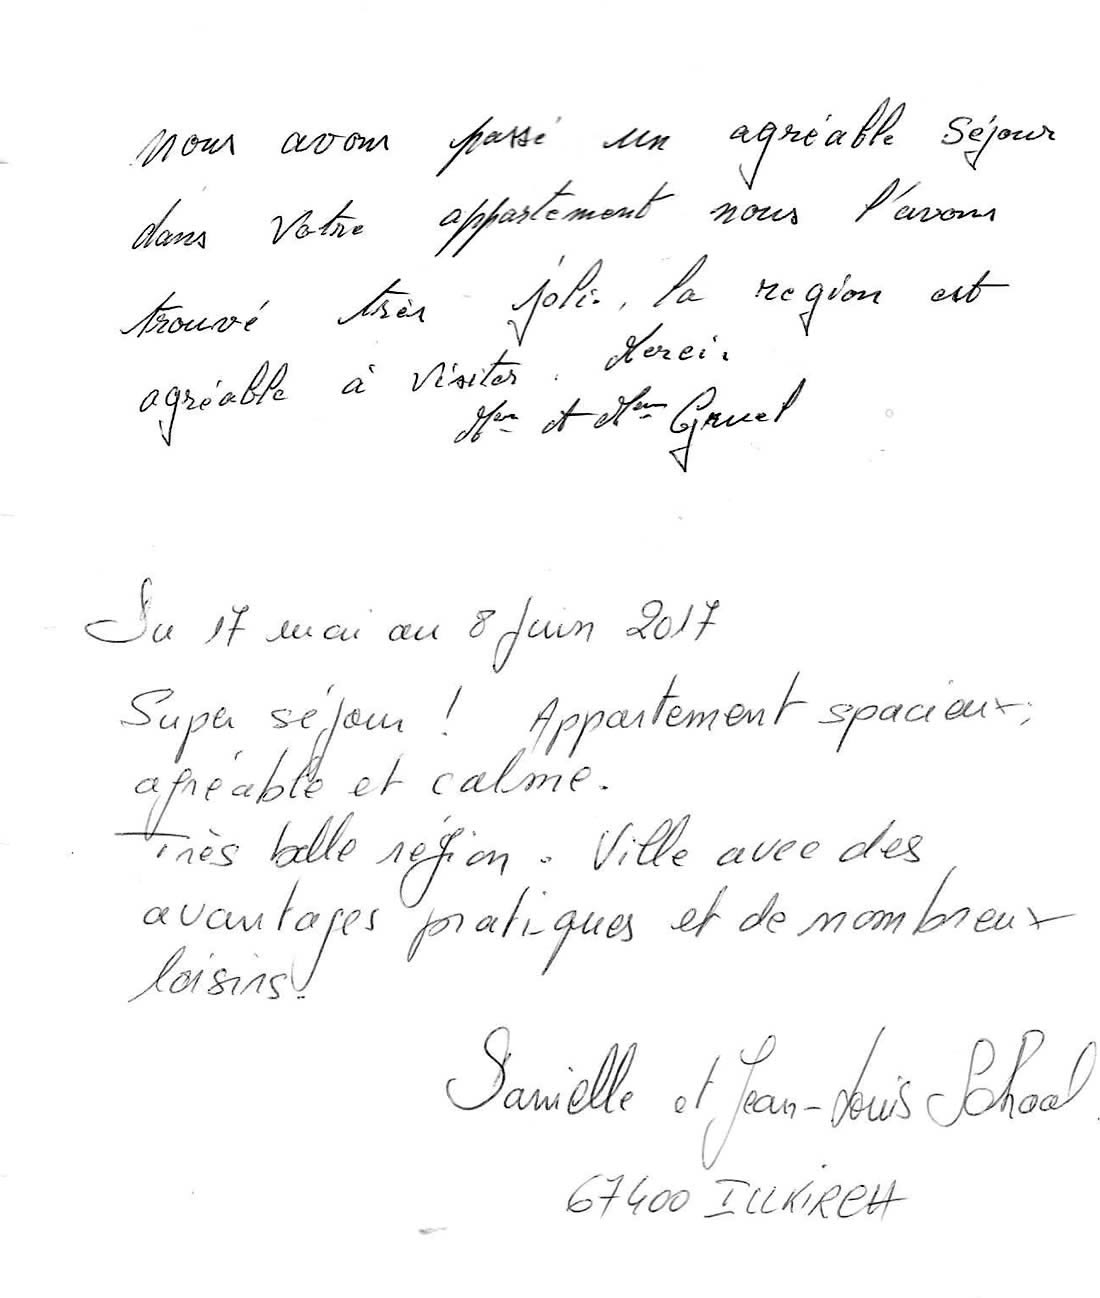 nous avons passé un agréable séjour
dans votre appartement nous l'avons
trouvé très joli, la region est
agréable à visiter. Merci.
Mr et Mme Gruel
Du 17 mai au 8 Juin 2017
Super séjour ! Appartement spacieux,
agréable et calme.
Très belle région. Ville avec des
avantages pratiques et de nombreux
loisirs.
Danielle et Jean-Louis Schaal
67400 ILLKIRCH